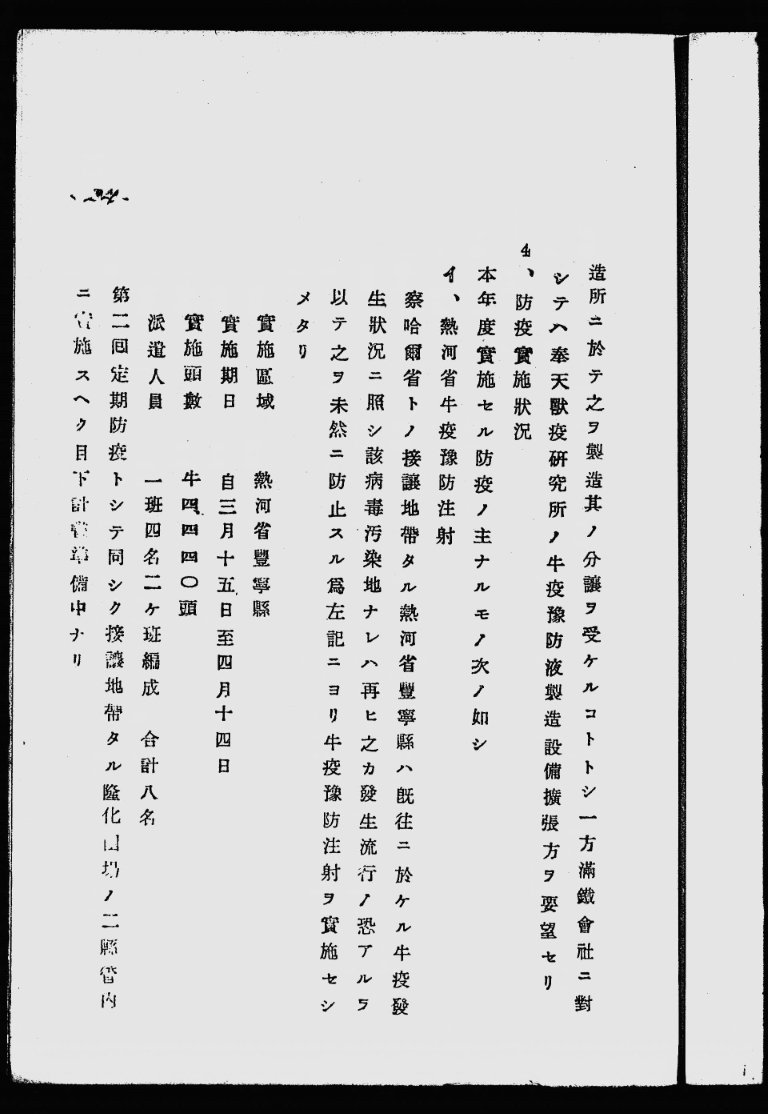 造所ニ於テ之ヲ製造其ノ分讓ヲ受ケルコトトシ一方滿鐵會社ニ對
シテハ奉天獸疫硏究所ノ牛疫豫防液製造設備擴張方ヲ要望セリ
4、防疫實施狀況
本年度實施セル防疫ノ主ナルモノ次ノ如シ
イ、熱河省牛疫豫防注射
察哈爾省トノ接讓地帶タル熱河省豐寧縣ハ旣往ニ於ケル牛疫發
生狀況ニ照シ該病毒汚染地ナレハ再ヒ之カ發生流行ノ恐アルヲ
以テ之ヲ未然ニ防止スル爲左記ニヨリ牛疫豫防注射ヲ實施セシ
メタリ
實施區域　熱河省豐寧縣
實施期日　自三月十五日至四月十四日
實施頭數　牛四四四〇頭
派遣人員　一班四名二ケ班編成　合計八名
第二囘定期防疫トシテ同シク接讓地帶タル隆化圍場ノ二縣管內
ニ實施スヘク目下計畫準備中ナリ